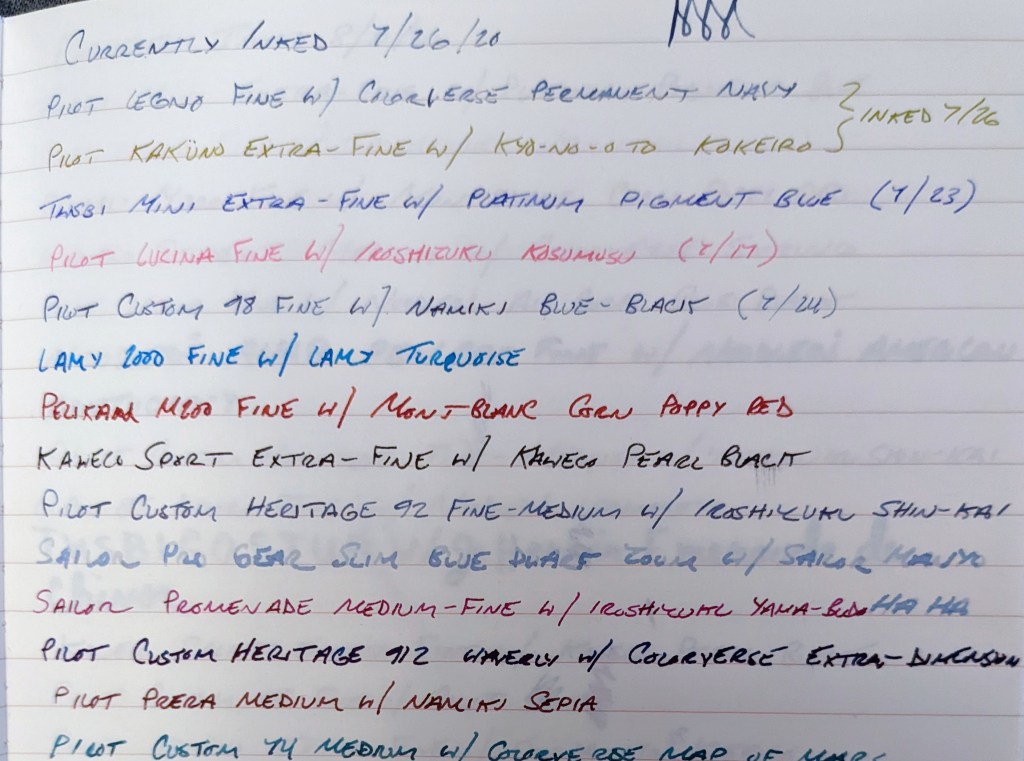 CURRENTLY INKED 7/26/20
PILOT LEGNO FINE W/ COLORVERSE PERMANENT NAVY
PILOT KAKÜNO EXTRA-FINE W/ KYO-NO-OTO KOKEIRO } INKED 7/26
TWSBI MINI EXTRA-FINE W/ PLATINUM PIGMENT BLUE (7/23)
PILOT LUCINA FINE W/ IROSHIZUKU KOSUMOSU (7/17)
PILOT CUSTOM 98 FINE W/ NAMIKI BLUE-BLACK (7/24)
LAMY 2000 FINE W/ LAMY TURQUOISE
PELIKAN M200 FINE W/ MONT-BLANC CORN POPPY RED
KAWECO SPORT EXTRA-FINE W/ KAWECO PEARL BLACK
PILOT CUSTOM HERITAGE 92 FINE-MEDIUM W/ IROSHIZUKU SHIN-KAI
SAILOR PRO GEAR SLIM BLUE DWARF ZOOM W/ SAILOR
SAILOR PROMENADE MEDIUM-FINE W/ IROSHIZUKU YAMA-BUDO HA HA
PILOT CUSTOM HERITAGE 912 WAVERLY W/ COLORVERSE EXTRA-DIMENSION
PILOT PRERA MEDIUM W/ NAMIKI SEPIA
PILOT CUSTOM 74 MEDIUM W/ COLORVERSE MAP OF MARS